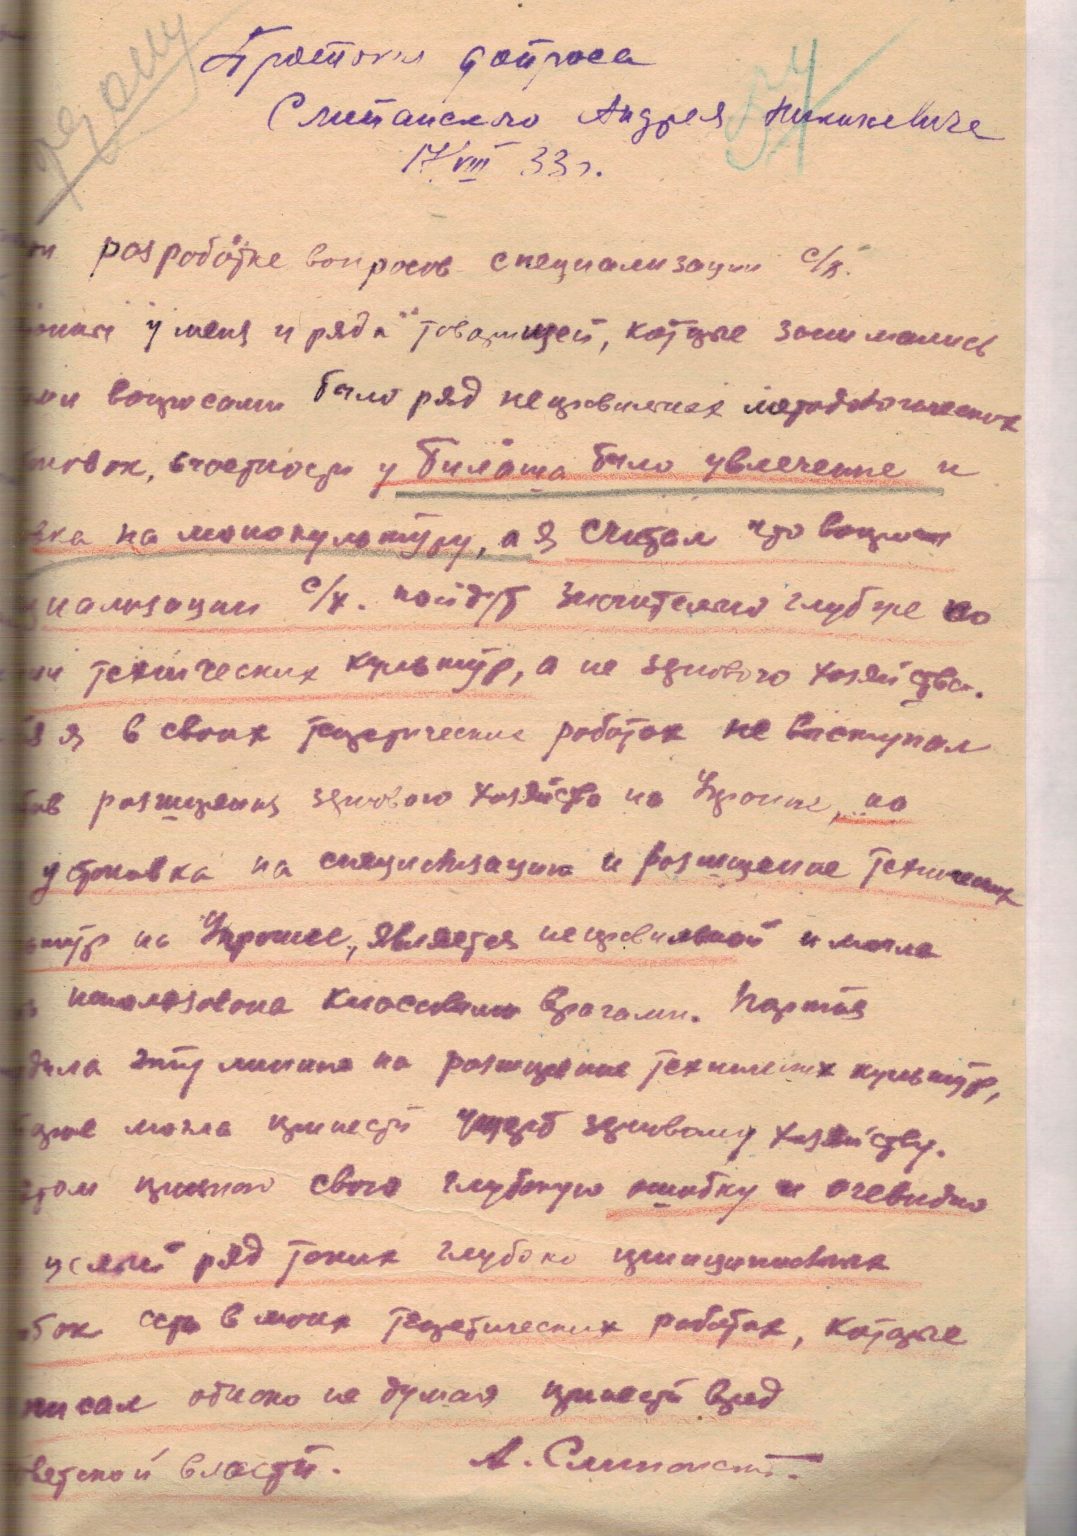 Протокол допроса
Слипанского Андрея
17/VIII 33 г.
розработке вопросов специализации с/х.
у меня и ряда товарищей, которые занимались
вопросами было ряд неправильных методологических
в частности у Билаша было увлечение и
на монокультуру, а я считал что вопросы
с/х. пойдут значительно глубже по
технических культур, а не зернового хозяйства.
я в своих теоретических роботах не выступал
розширения зернового хозяйства на Украине, но
установка на специализацию и розширение технических
на Украине, является неправильной и могла
использована классовыми врагами. Партия
эту линию на розширение технических культур,
могла принести ущерб зерновому хозяйству.
этом признаю свою глубокую ошибку и очевидно
целый ряд таких глубоко принципиальных
есть в моих теоретических роботах, которые
писал однако не думая принести вред
власти. А. Слипанский.